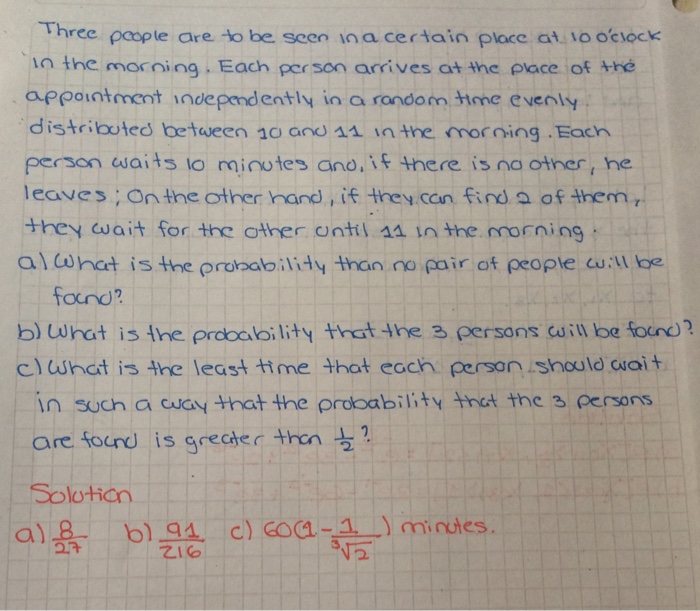 Three people are to be seen in a certain place at 10 o'clock
in the morning. Each person arrives at the place of the
appointment independently in a random time evenly
distributed between 10 and 11 in the morning. Each
person waits 10 minutes and, if there is no other, he
leaves; On the other hand, if they can find 2 of them,
they wait for the other until 11 in the morning.
a) What is the probability than no pair of people will be
found?
b) What is the probability that the 3 persons will be found?
c) What is the least time that each person should wait
in such a way that the probability that the 3 persons
are found is greater than 1/2?
Solution
a) 8/27 b) 91/216 c) 60(1-1/∛2) minutes.